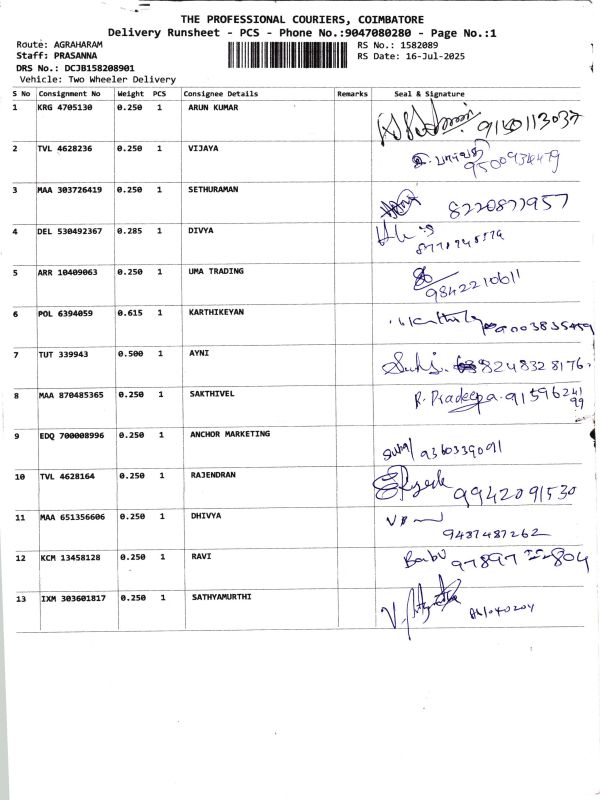 THE PROFESSIONAL COURIERS, COIMBATORE
Delivery Runsheet - PCS - Phone No.:9047080280 - Page No.:1
Route: AGRAHARAM RS No.: 1582089
Staff: PRASANNA RS Date: 16-Jul-2025
DRS No.: DCJB158208901
Vehicle: Two Wheeler Delivery
S No Consignment No Weight PCS Consignee Details Remarks Seal & Signature
1 KRG 4705130 0.250 1 ARUN KUMAR
2 TVL 4628236 0.250 1 VIJAYA
3 MAA 303726419 0.250 1 SETHURAMAN 8220877957
4 DEL 530492367 0.285 1 DIVYA
5 ARR 10409063 0.250 1 UMA TRADING 9842210611
6 POL 6394059 0.615 1 KARTHIKEYAN
7 TUT 339943 0.500 1 AYNI 8248328176.
8 MAA 870485365 0.250 1 SAKTHIVEL R. Pradeepa. 91596241
99
9 EDQ 700008996 0.250 1 ANCHOR MARKETING 9360339091
10 TVL 4628164 0.250 1 RAJENDRAN 9942091530
11 MAA 651356606 0.250 1 DHIVYA
9487487262
12 KCM 13458128 0.250 1 RAVI Babu
13 IXM 303601817 0.250 1 SATHYAMURTHI